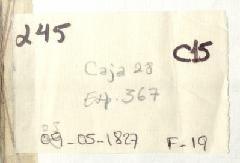 245
C15
Caja 28
Exp. 367
-05-1827 F-19